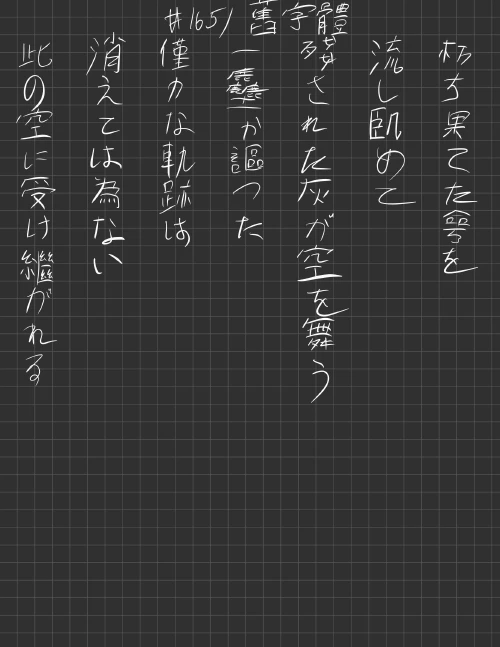 #1651 舊字體
朽ち果てたを
流しめて
殘された灰が空を舞う
一が謳つた
僅かな軌跡は
消えては為ない
此の空に受け繼がれる